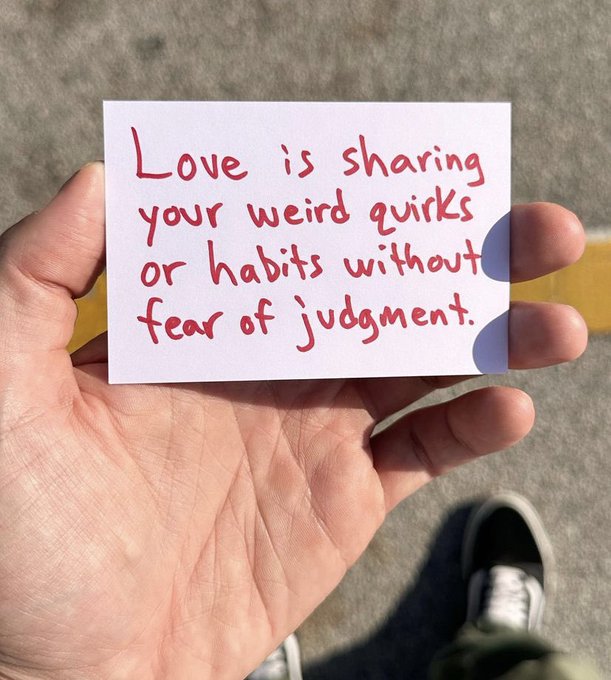 Love is sharing
your weird quirks
or habits without
fear of judgment.